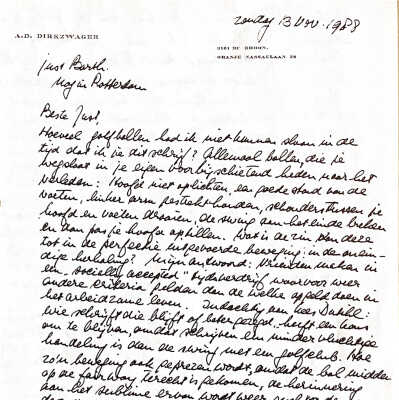 zondag 13 Nov. 1988
A.D. DIRKZWAGER
3161 DC RHOON.
ORANJE NASSAULAAN 28
Just Barth.
Rotterdam
Beste Just,
Hoeveel golfballen had ik niet kunnen slaan in de
tijd dat ik je dit schrijf? Allemaal ballen, die je
wegslaat in je eigen voorbijschietend heden naar het
verleden: Hoofd niet oplichten, een goede stand van de
voeten, linker arm gestrekt houden, schouders tussen je
hoofd en voeten draaien, de swing aan het einde breken
en dan pas je hoofd optillen. Wat is de zin van deze
tot in de perfectie uitgevoerde beweging: in de onein-
dige herhaling? Mijn antwoord: Vrienden maken in
een "socially accepted" tijdverdrijf waarvoor weer
andere criteria gelden dan de welke opgeld doen in
het arbeidzame leven. Indachtig aan
wie schrijft die blijft of beter gezegd heeft een kans
om te blijven, omdat schrijven een minder vluchtige
handeling is dan de swing met een golfclub. Hoe
zo'n beweging ook geprezen wordt, omdat de bal midden
op de fairway terecht is gekomen, de herinnering
aan het sublieme ervan wordt weer